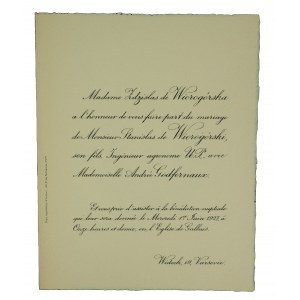 Madame Zdzislas de Wierogórska
a l'honneur de vous faire part du mariage
de Monsieur Stanislas de Wierogórski,
son fils, Ingénieur agronome W.P., avec
Mademoiselle Andrée Godfernaux.
Et vous prie d'assister à la bénédiction nuptiale
qui leur sera donnée le Mercredi 1er Juin 1927 à
Onze heures et demie, en l'Eglise de
Varsovie.